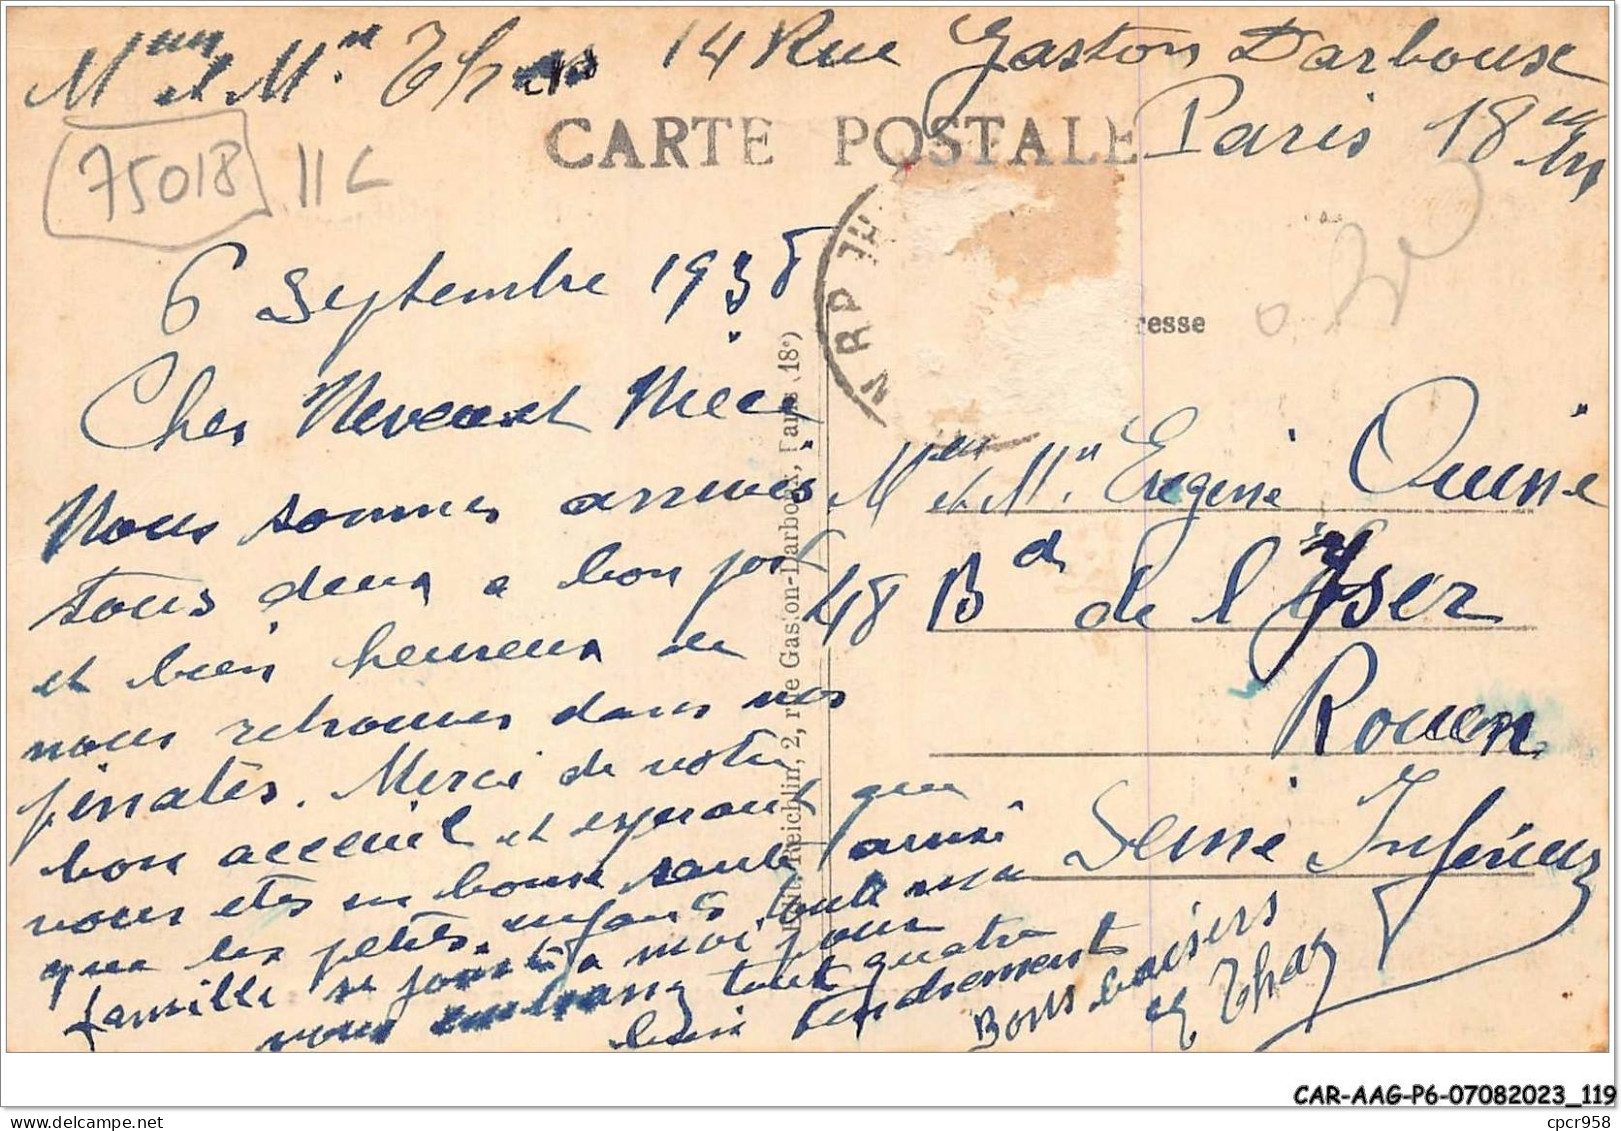 Mme et Mr Thas 14 Rue Gaston Darboux
Paris 18em
CARTE POSTALE
75018 11 C
6 Septembre 1938
resse
Cher Neveu et Niece
Nous sommes arrivés
tous deux a bon port
et bien heureux de
nous retrouver dans nos
pénates. Merci de votre
bon acceuil et esperant que
vous etes en bonne santé ainsi
que les petits enfants toute ma
famille se joint a moi pour
vous embrasser tout quatre
bien tendrement
Bons baisers
Thas
Edit. Reichlin, 2, rue Gaston-Darboux, Paris (18e)
Mme et Mr. Eugene Ouine
48 Bd de l Yser
Rouen
Seine Inferieur
CAR-AAG-P6-07082023_119
cpcr958